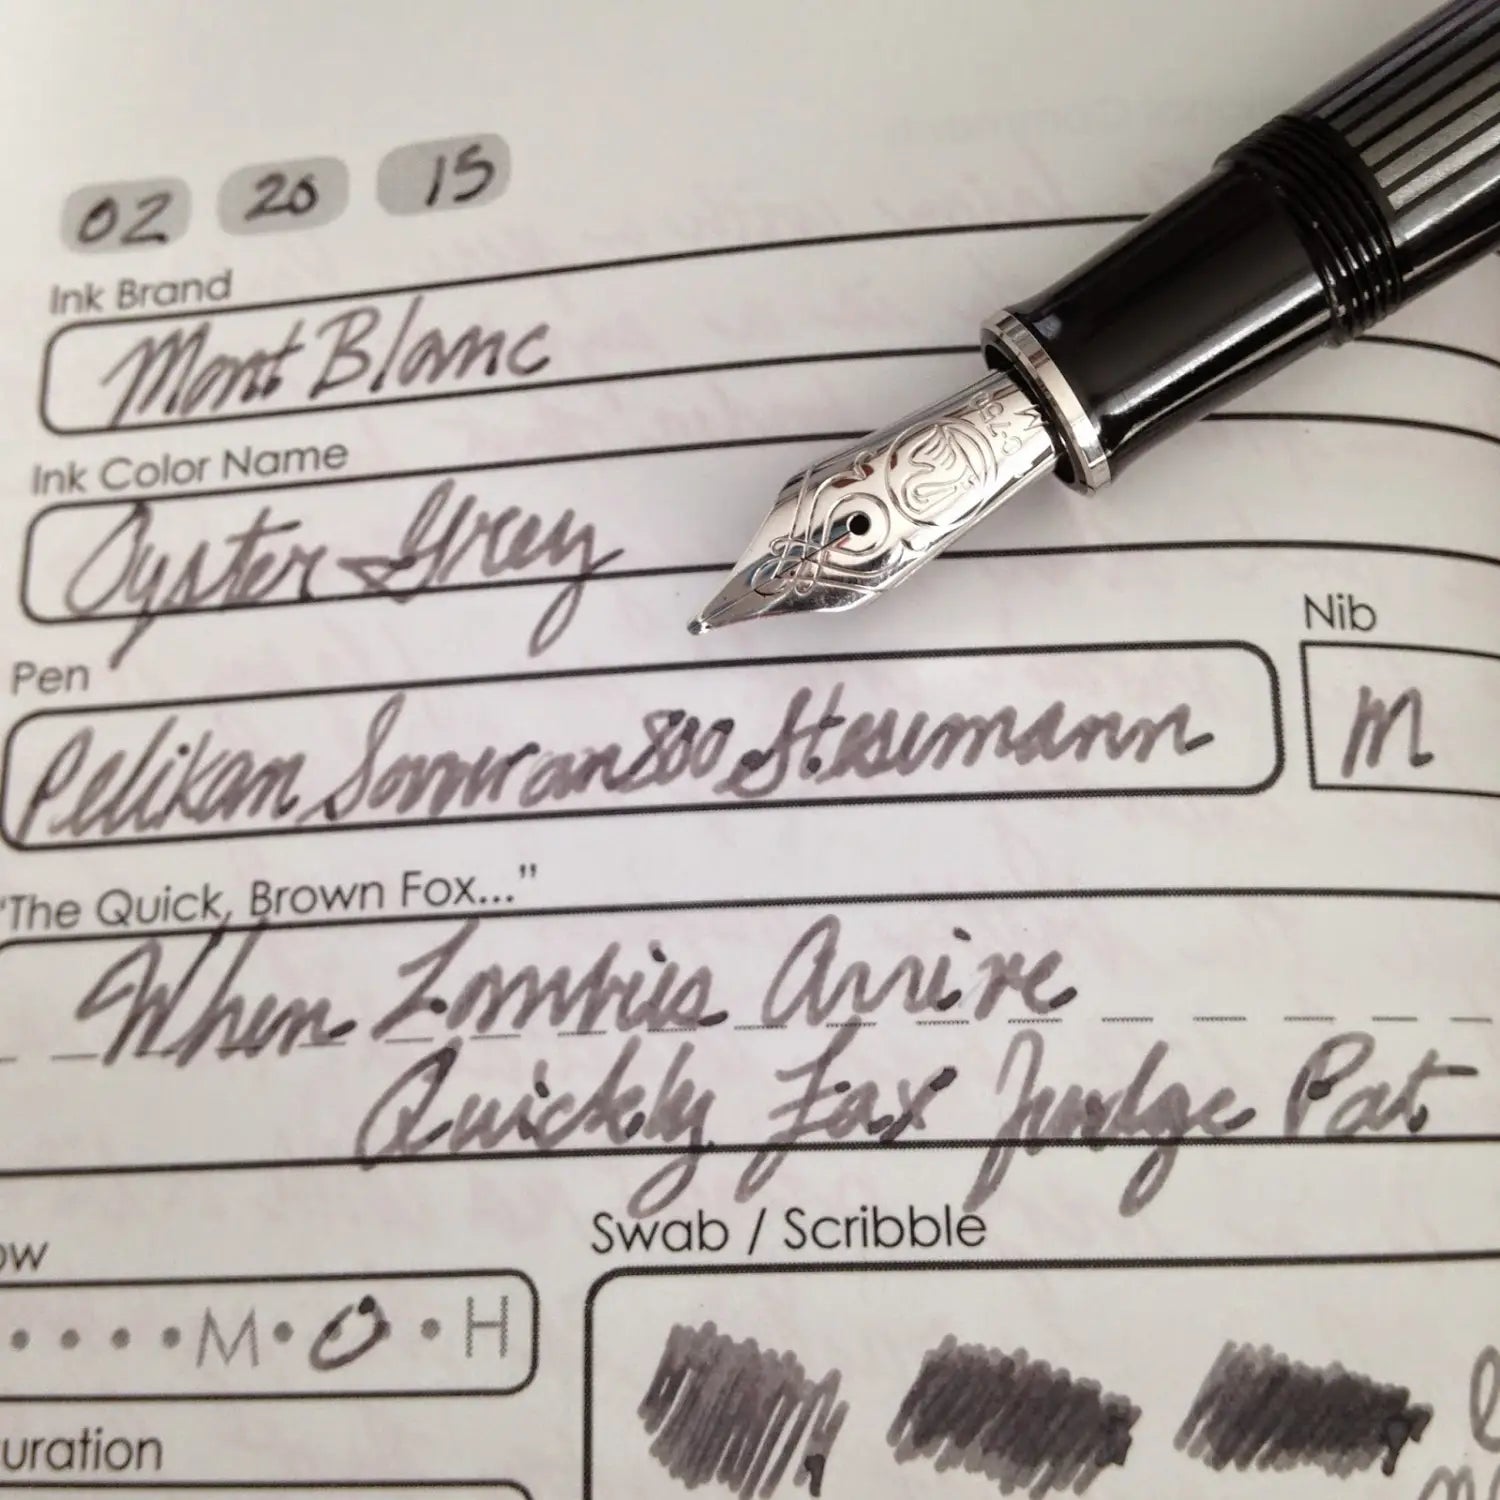 02 20 15
Ink Brand
Mont Blanc
Ink Color Name
Oyster Grey
Pen
Nib
Pelikan Souveran 800 Stresemann
M
"The Quick, Brown Fox..."
When Zombies Arrive
Quickly Fax Judge Pat
ow
Swab / Scribble
M H
uration
M 14C-750